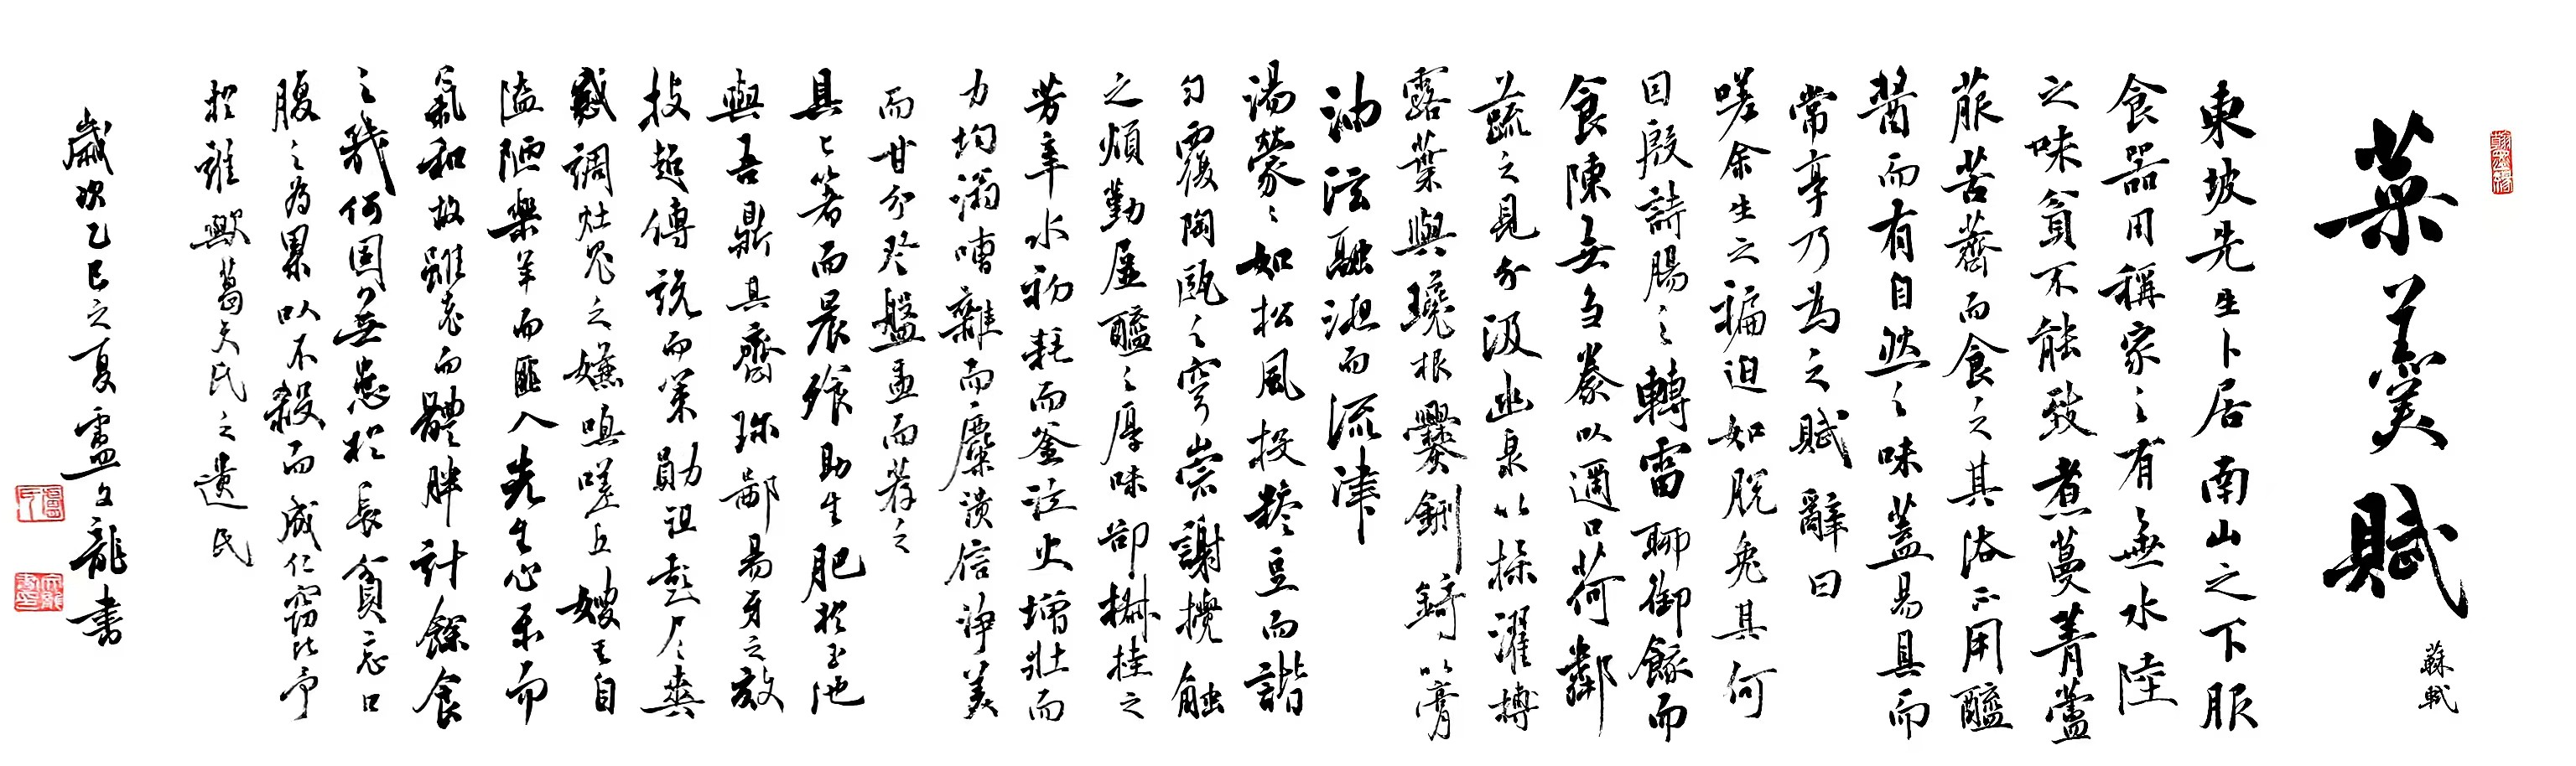 菜羹賦
蘇軾
東坡先生卜居南山之下服
食器用稱家之有無水陸
之味貧不能致煮蔓菁蘆
菔苦薺而食之其法不用醯
醬而有自然之味蓋易具而
常享乃為之賦辭曰
嗟余生之褊迫如脫兔其何
因殷詩腸之轉雷聊御餓而
食陳無芻豢以適口荷鄰
蔬之見分汲幽泉以揉濯搏
露葉與瓊根爨鉶錡以膏
油泫融液而流津
湯蒙〻如松風投糝豆而諧
勻覆陶甌之穹崇謝攪觸
之煩勤屏醯之厚味卻椒桂之
芳辛水初耗而釜泣火增壯而
力均滃嘈雜而麋潰信淨美
而甘分登盤盂而薦之
具匕箸而晨飧助生肥於玉池
與吾鼎其齊珍鄙易牙之效
技超傅說而策勛沮彭尸之爽
惑調灶鬼之嫌嗔嗟丘嫂其自
隘陋樂羊而匪人先生心平而
氣和故雖老而體胖計餘食
之幾何固無患於長貧忘口
腹之為累以不殺而成仁竊比予
於誰歟葛天氏之遺民
歲次乙巳之夏盧文龍書